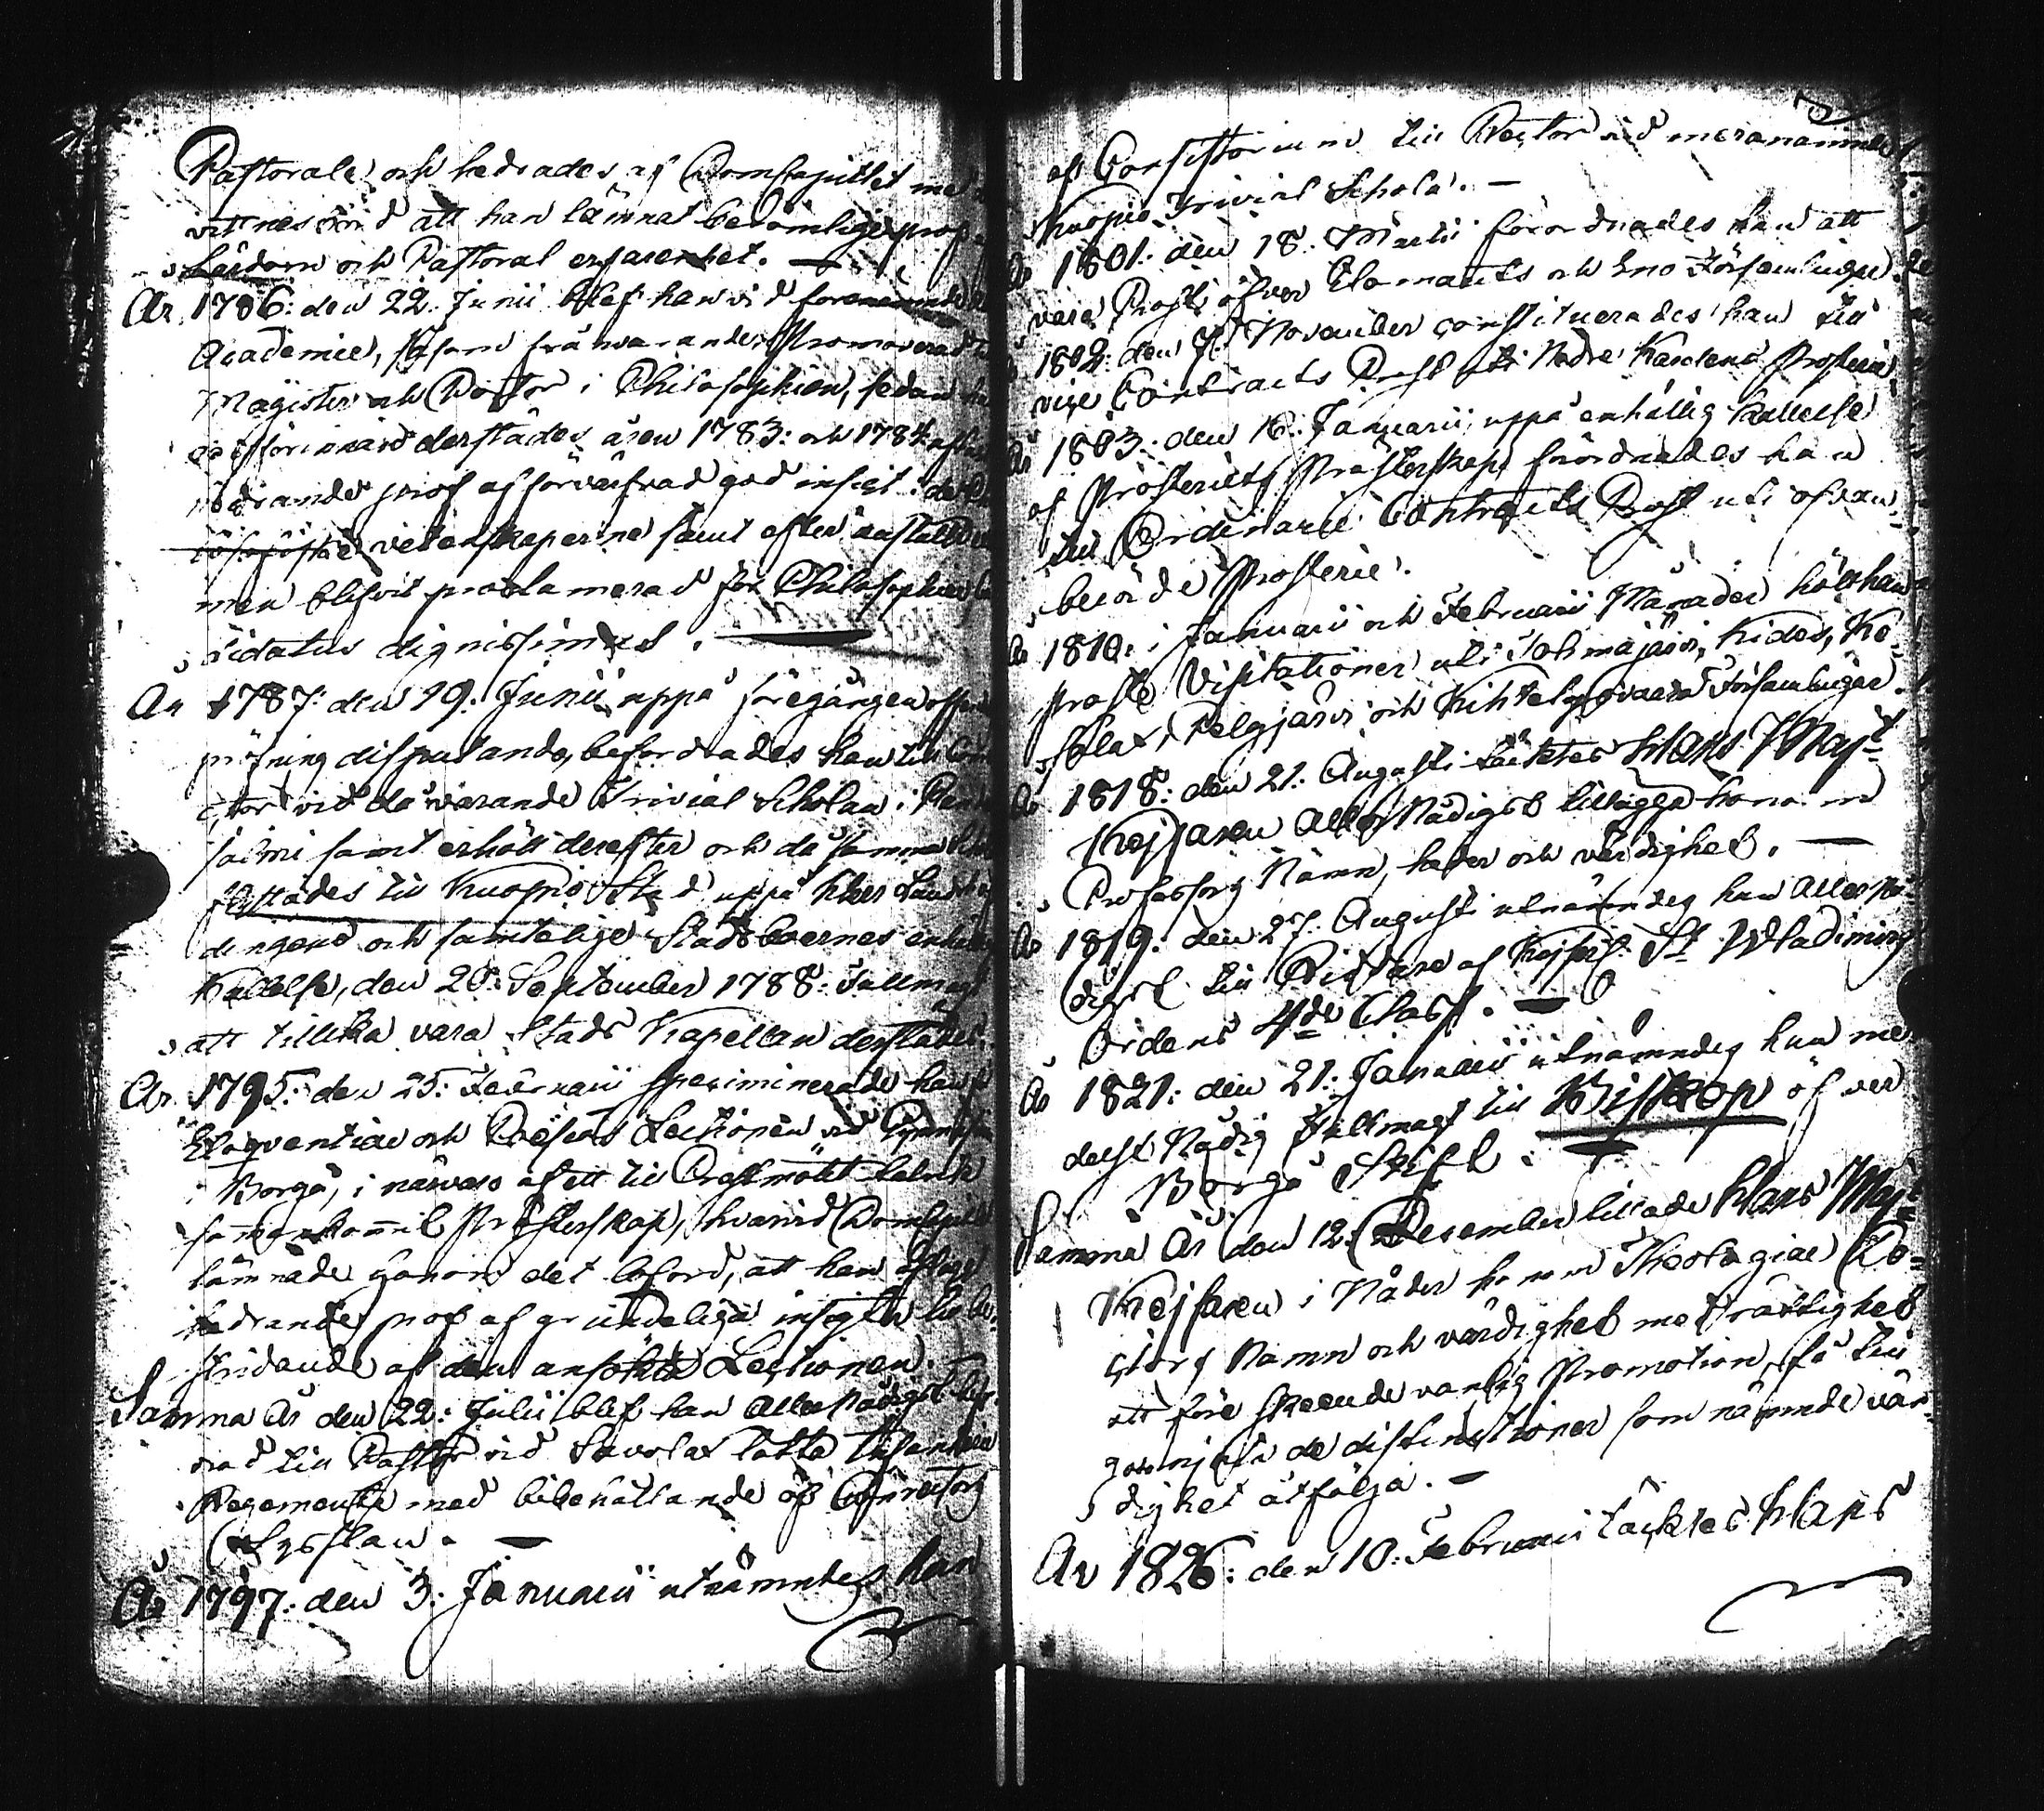 Pastorale och hedrades af Domkapitlet me
vittnesbörd att han lämnat berömlige prof
Lärdom och Pastoral erfarenhet. —
År 1786: den 22 Junii blef han vid förenämnde
Academie, såsom frånvarande, Promoverad
Magister och Doctor i Philosophien, sedan ha
derstädes åren 1783: och 1784 afla
hedrande prof af förvärfvad god insigt i de
vetenskaperne samt efter anstäld
men blifvit proclamerad för Philosophiæ
didatus dignissimus. —
År 1787: den 19: Junii uppå föregången
pröfning disputando, befordrades han till Con
ctor vid då varande Trivial Scholan i Ran
salmi samt erhöll derefter och då samma
flyttades till Kuopio Stad uppå Herr Landshöf
dingens och samtelige Stadsboernes enhällige
Kallelse, den 20: September 1788: Fullmagt
att tillika vara Stads Kapellan derstädes.
År 1795: den 25: Februarii speciminerade han
Eloquentiæ och Poëseos Lectionen vid Gymnasiu
i Borgå, i närvaro af ett till Prestmötet talrik
sammankommit Presterskap, hvarvid Domkapitlet
lämnade honom det loford, att han aflagt
hedrande prof af grundeliga insigter till be-
stridande af den ansökte Lectionen.
Samma År den 22: Julii blef han Allernådigst
nad till Pastor vid Savolax lätta Infanterie
Regemente med bibehållande af Conrectors
Sysslan. —
År 1797: den 3: Januarii utnämndes han
af Consistorium till Rector vid meranämnde
Kuopio Trivial Schola. —
År 1801: den 18: Martii förordnades han att
vara Prost öfver Elomants och Eno Församlingar.
1802: den 7: November constituerades han till
vice Contracts Prost uti Nedre Karelens Prosterie
År 1803: den 16: Januarii, uppå enhällig kallelse
af Prosteriets Presterskap, förordnades han
till Ordinarie Contracts Prost uti ofvan
berörde Prosterie.
År 1810: i Januarii och Februarii Månader höll han
Proste Visitationer uti Tohmajärvi, Kides, Ke-
sälax, Pelgjärvi och Kihtelysvaara Församlingar.
År 1818: den 21: Augusti täcktes Hans Majt
Kejsaren Aller Nådigst tillägga honom
Professors Namn, heder och värdighet. —
År 1819: den 27: Augusti utnämndes han Allernå-
digst till Riddare af Kejserl: St Wladimirs
Ordens 4de Class. —
År 1821: den 21: Januarii utnämndes han me
delst Nådig Fullmagt till Biskop öfver
Borgå Stift.
Samma År den 12: December tillade Hans Majt
Kejsaren i Nåder honom Theologiæ Do-
ctors Namn och värdighet med rättighet
att före skeende vanlig Promotion, få till
godo njuta de distinctioner som nämnde vär-
dighet åtfölja. —
År 1826: den 10: Februarii täcktes Hans